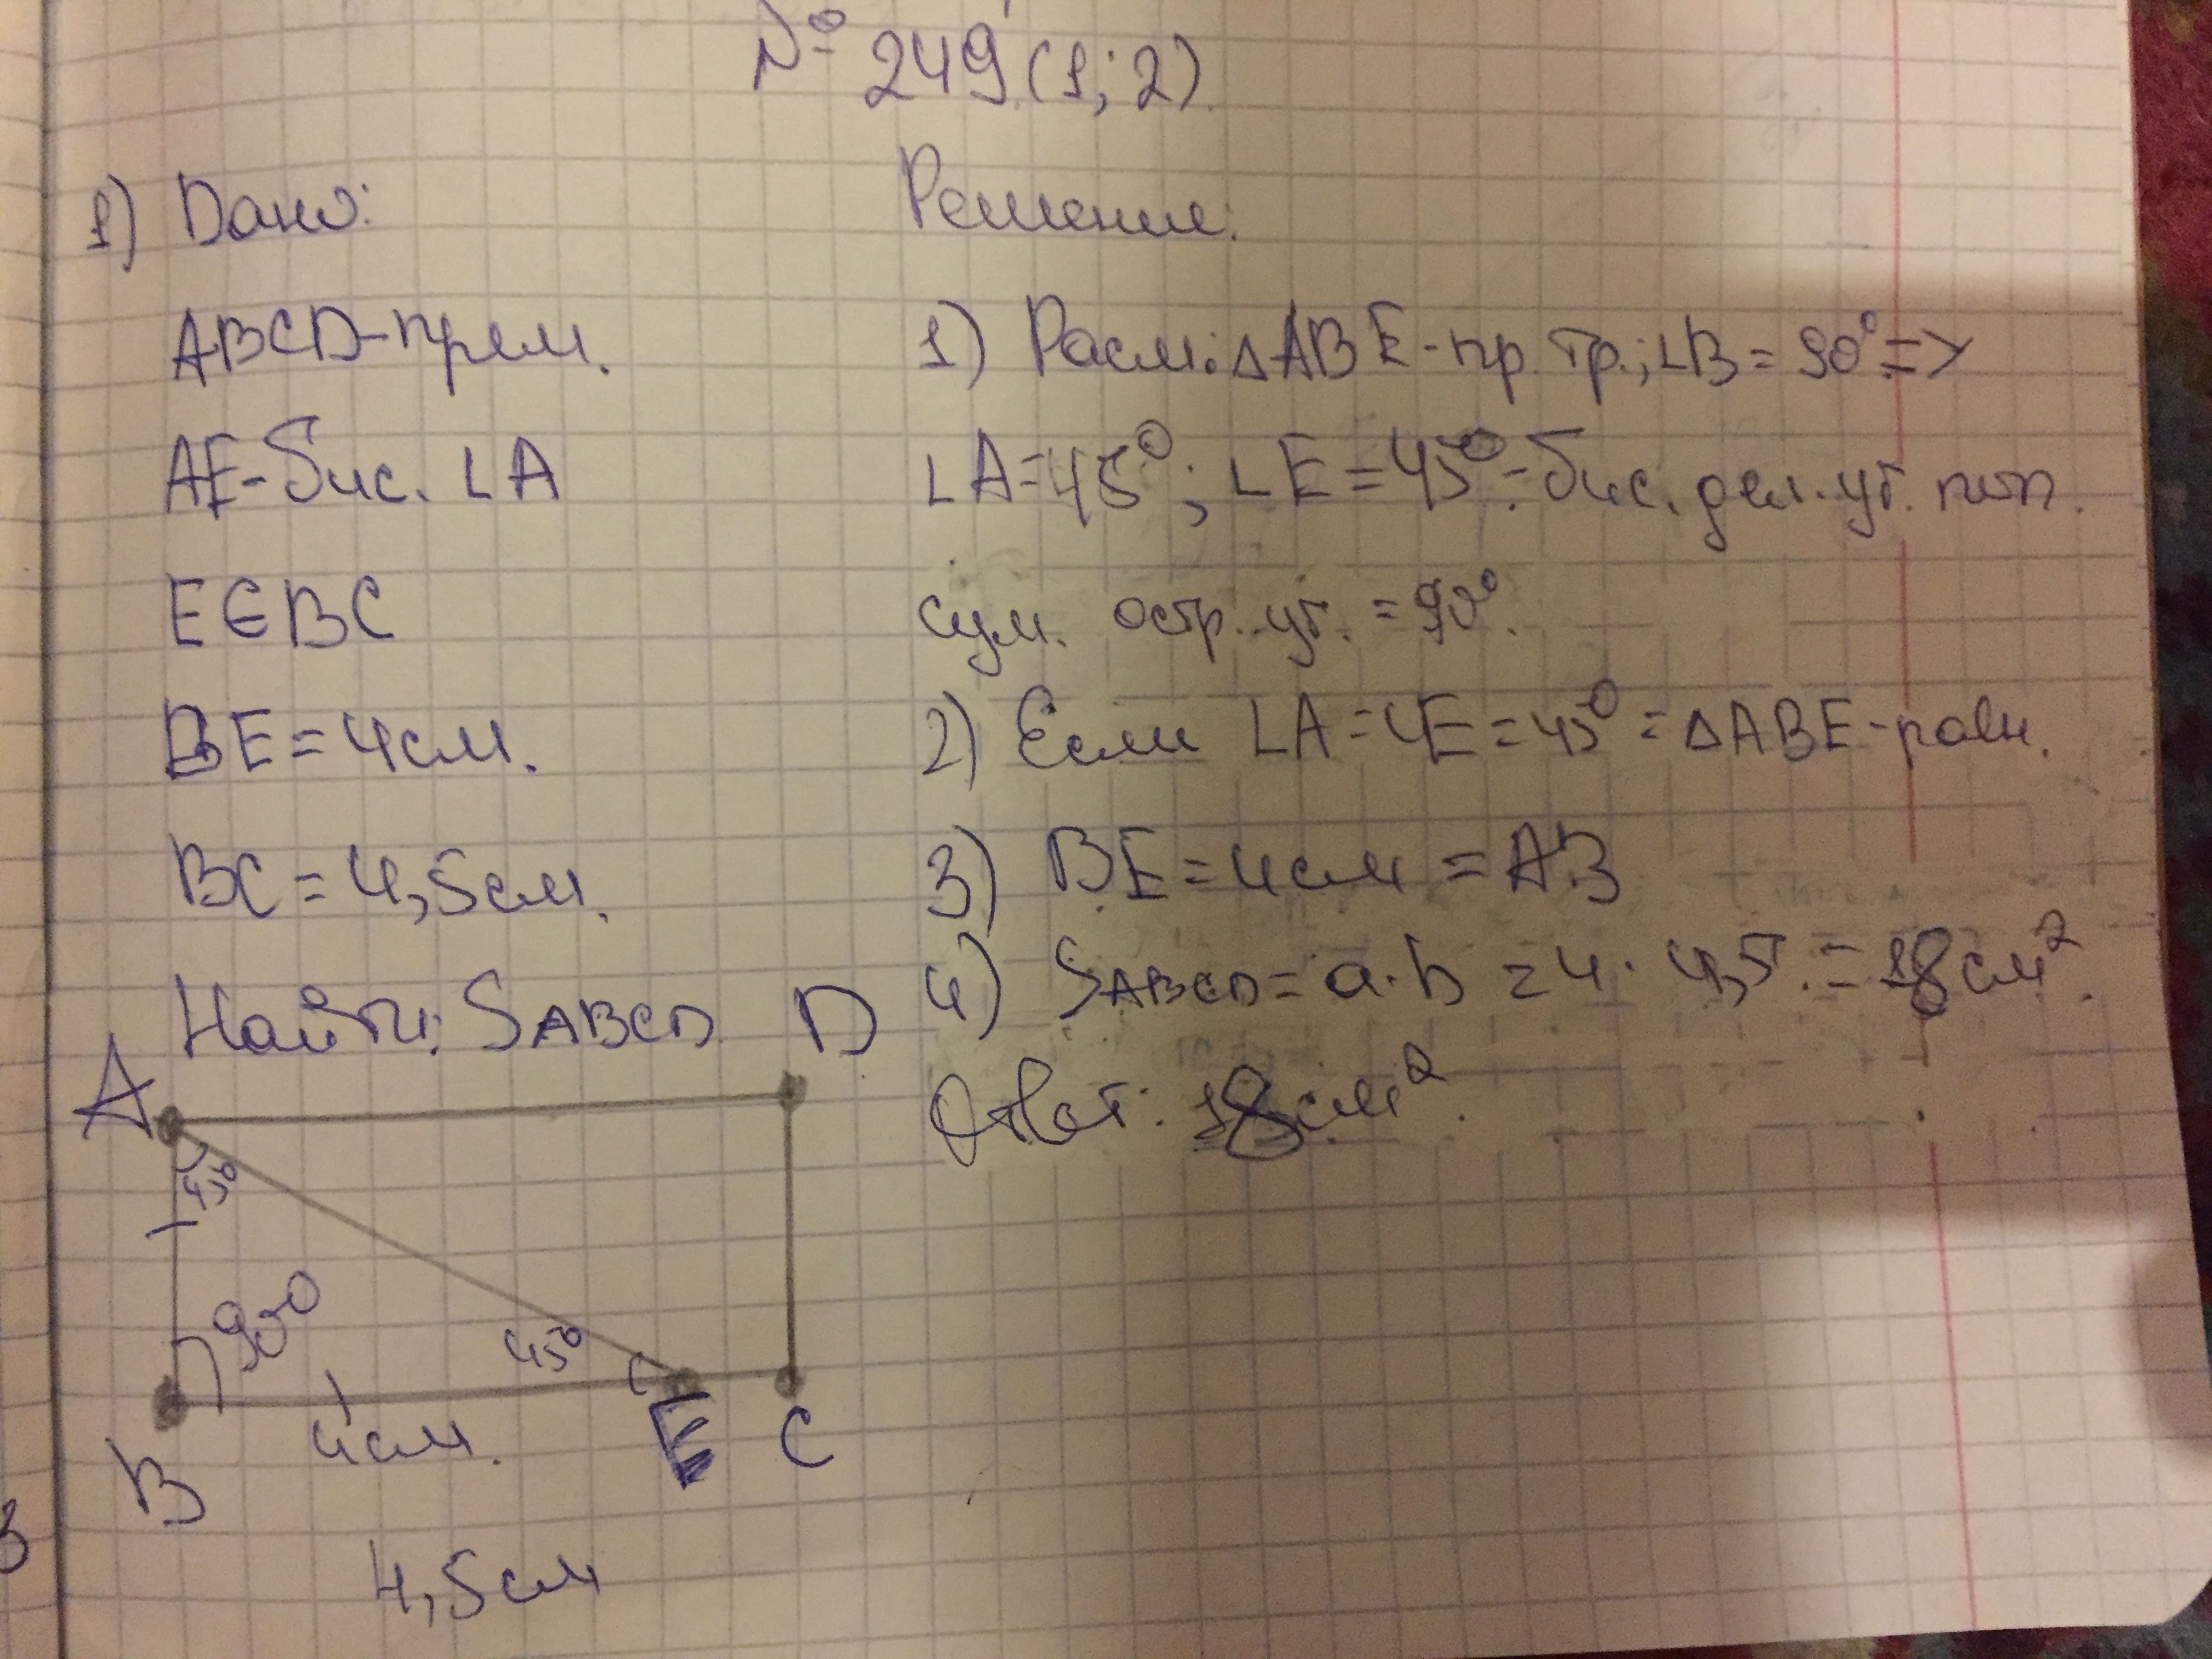 № 249 (1; 2).
1) Дано:
ABCD-прям.
AE-бис. ∠A
E∈BC
BE=4см.
BC=4,5см.
Найти: SABCD
Решение:
1) Расм: ΔABE-пр. тр.; ∠B=90°=>
∠A=45°; ∠E=45°-бис. дел. уг. поп.
сум. остр. уг.=90°.
2) Если ∠A=∠E=45°=ΔABE-равн.
3) BE=4см=AB
4) SABCD=a·b=4·4,5=18см².
Ответ: 18см².
A
D
45°
90°
45°
4см.
B
E
C
4,5см